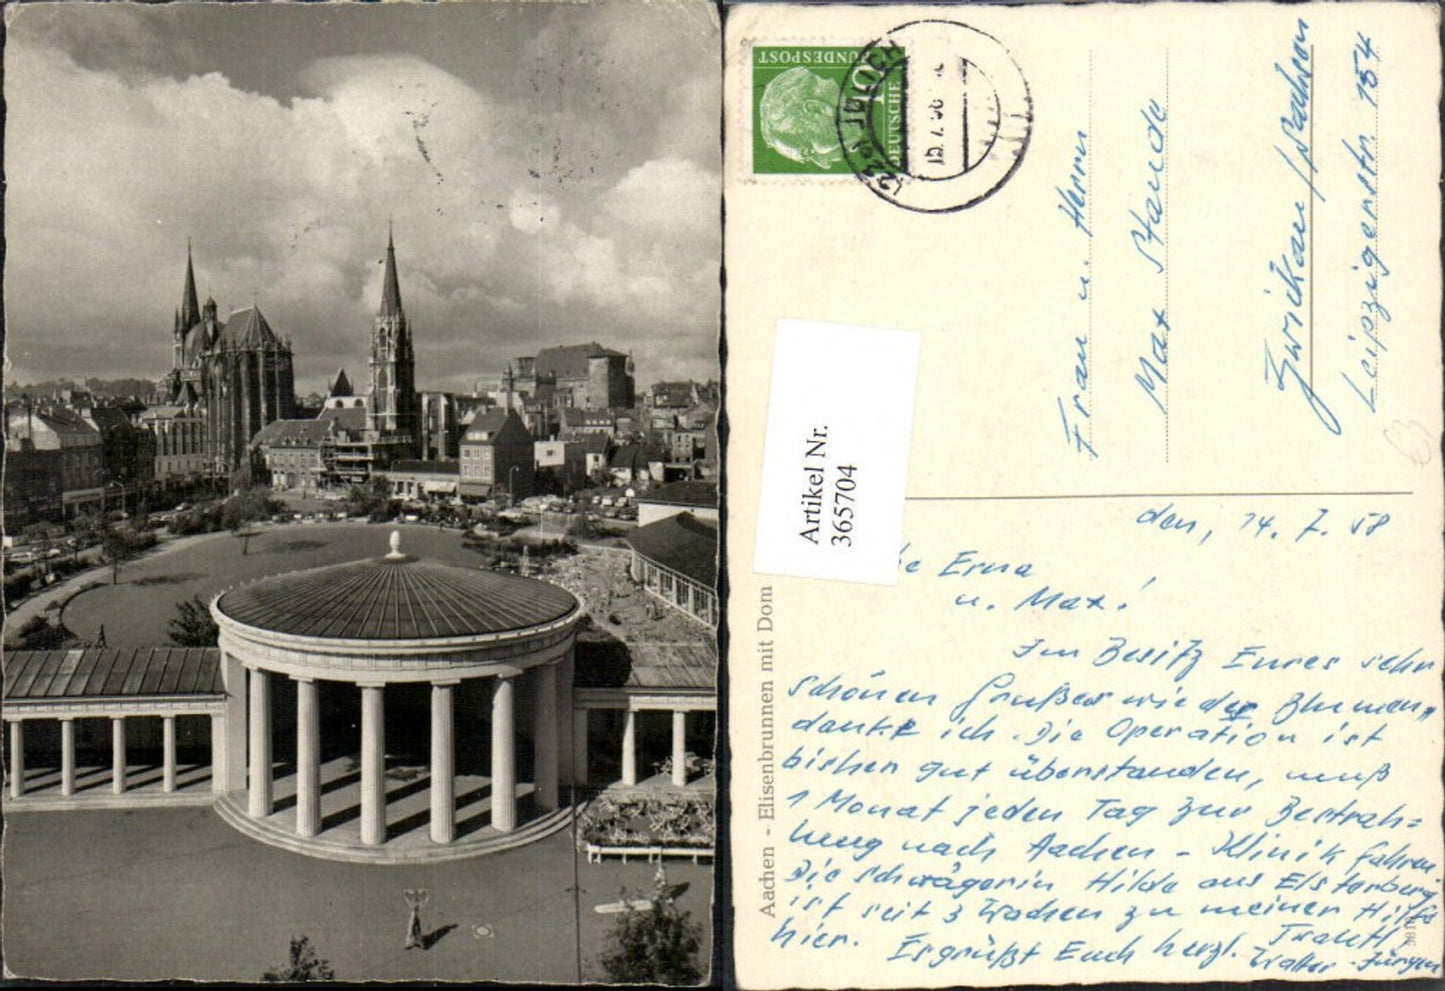 BUNDESPOST
10
DEUTSCHE
(22c) JÜLICH
15.7.58
Frau u. Herrn
Max Staude
Zwickau/Sachsen
Leipzigerstr. 154
Artikel Nr.
365704
Aachen - Elisenbrunnen mit Dom
den, 14. 7. 58
Erna
u. Max!
Im Besitz Eures sehr
schönen Grußes wie der Blumen,
danke ich. Die Operation ist
bisher gut überstanden, muß
1 Monat jeden Tag zur Bestrah=
lung nach Aachen - Klinik fahren.
Die Schwägerin Hilde aus Elsterberg
ist seit 3 Wochen zu meiner Hilfe
hier.
Es grüßt Euch herzl.
Walter Jürgen